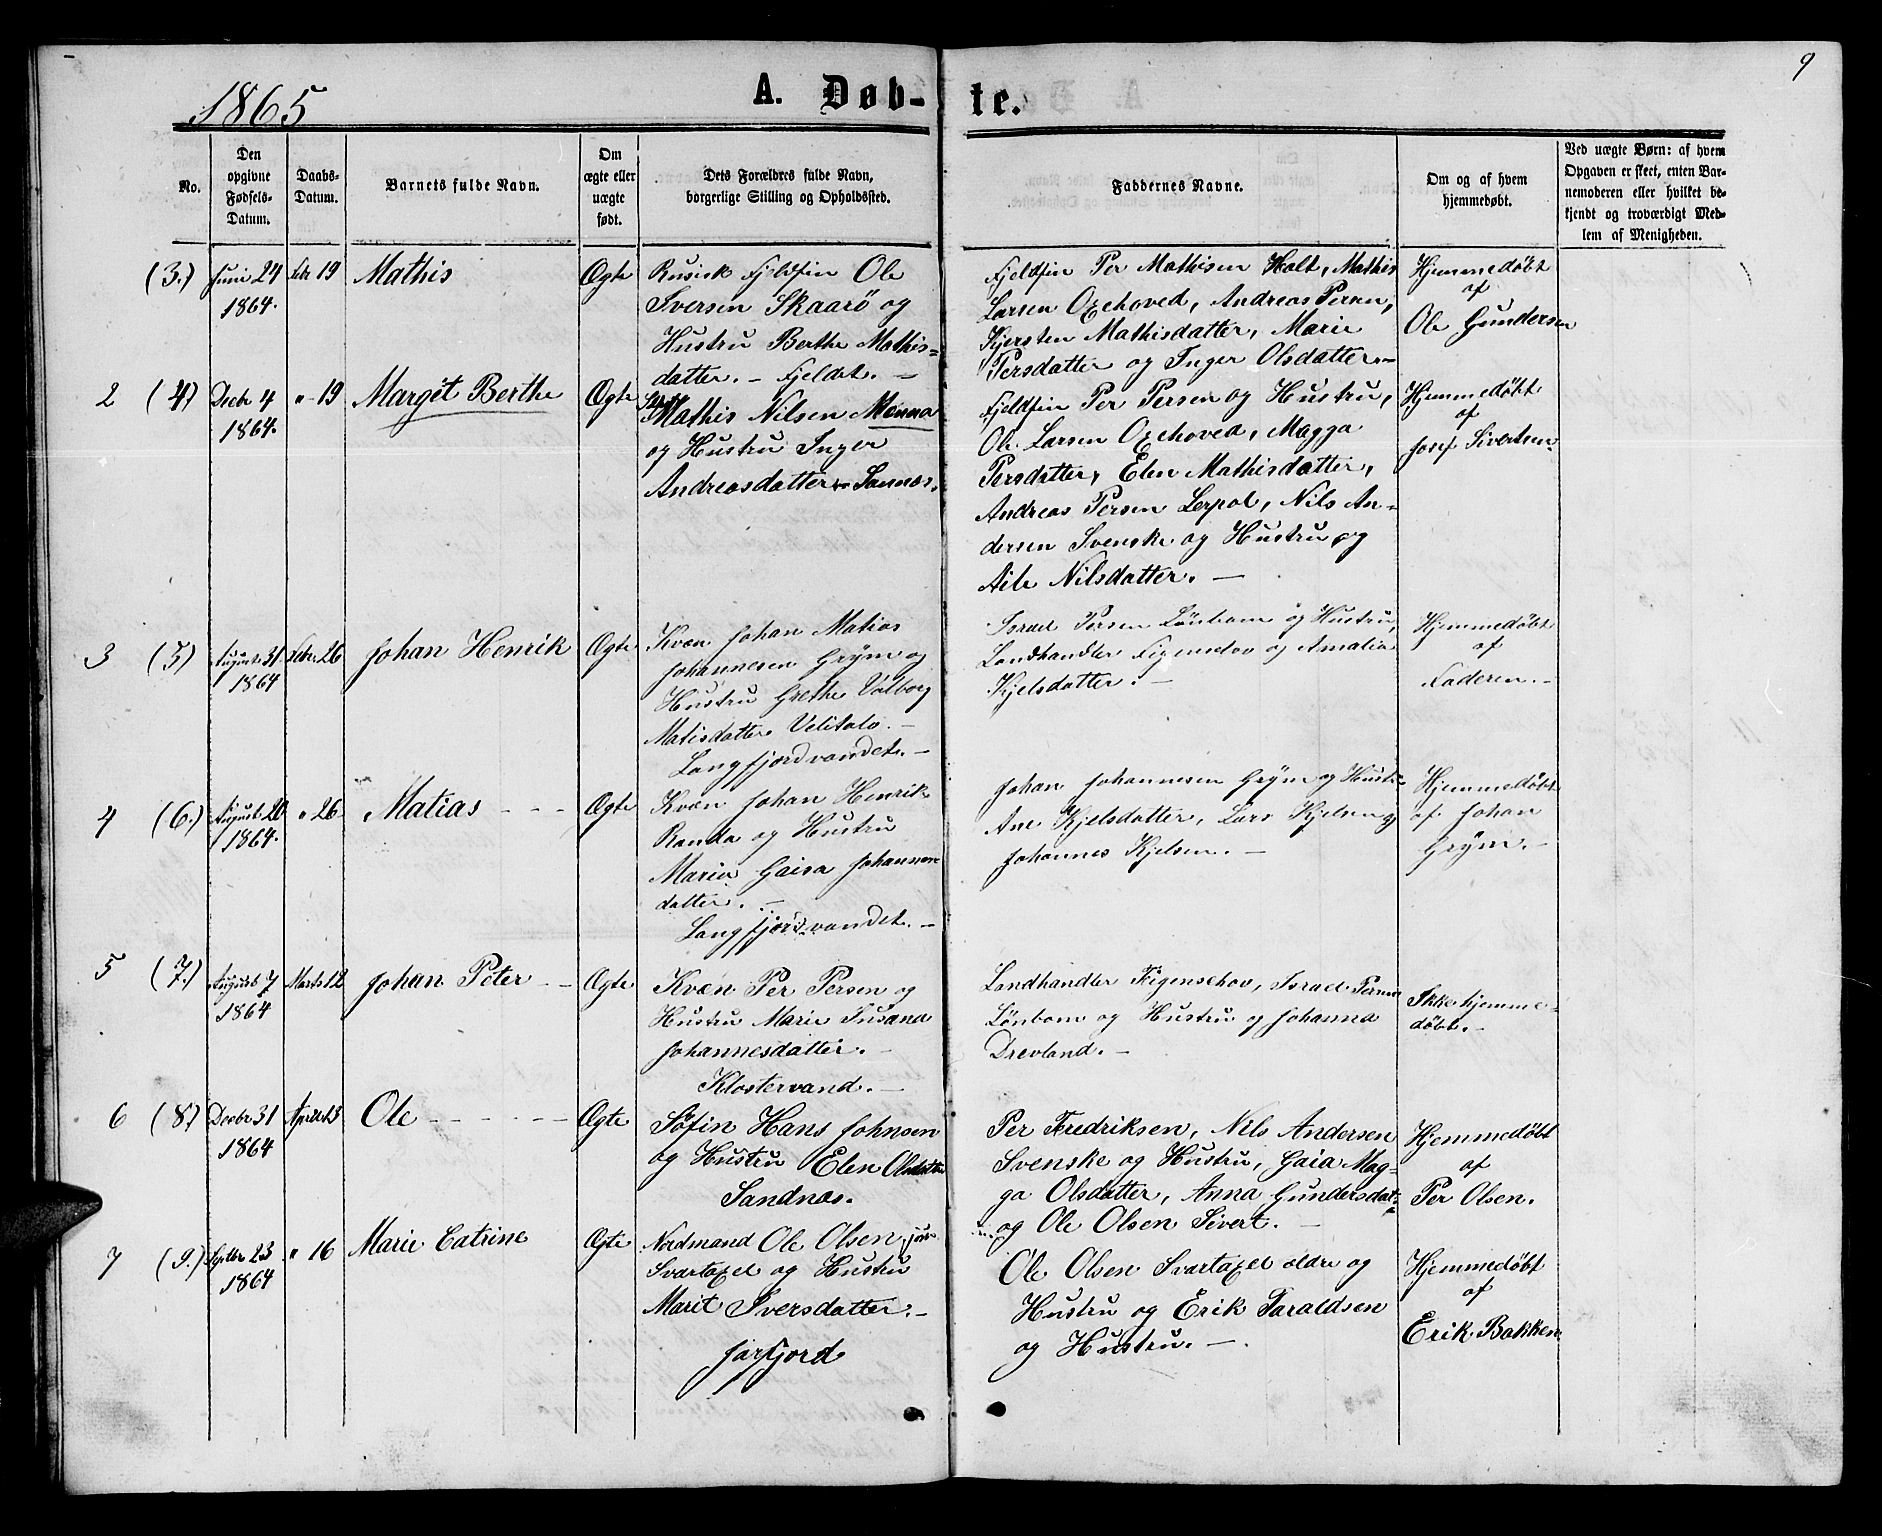 9
1865
A. Døb- te.
No.
Den opgivne Fødsels-Datum.
Daabs-Datum.
Barnets fulde Navn.
Om ægte eller uægte født.
Dets Forældres fulde Navn, borgerlige Stilling og Opholdssted.
Faddernes Navne.
Om og af hvem hjemmedøbt.
Ved uægte Børn: af hvem Opgaven er skeet, enten Barnemoderen eller hvilket bekjendt og troværdigt Medlem af Menigheden.
(3.)
Juni 24
1864.
Febr 19
Mathis
Ægte
Russisk Fjeldfin Ole
Iversen Skaarö og
Hustru Berthe Mathis=
datter. – Fjeldet. –
Fjeldfin Per Mathisen Halt, Mathis
Larsen Oxehoved, Andreas Persen,
Kjersten Mathisdatter, Marie
Persdatter og Inger Olsdatter. –
Hjemmedøbt
af
Ole Gundersen
2
(4)
Decbr 4
1864.
" 19
Margit Berthe
Ægte
Mathis Nilsen Menna
og Hustru Inger
Andreasdatter
Fjeldfin Per Persen og Hustru,
Ole Larsen Oxehoved, Magga
Persdatter, Elen Mathisdatter,
Andreas Persen Lerpol, Nils An=
dersen Svenske og Hustru og
Aile Nilsdatter. –
Hjemmedøbt
af
Josef Sivertsen.
3
(5)
August 31
1864
Febr. 26
Johan Henrik
Ægte
Kvæn Johan Matias
Johannesen Grÿm og
Hustru Grethe Valborg
Matisdatter Velitalo. –
Langfjordvandet. –
Israel Persen Lönbom og Hustru,
Landhandler og Amalia
Kjelsdatter. –
Hjemmedøbt
af
Faderen. –
4
(6.)
August 20
1864.
" 26
Matias – – –
Ægte
Kvæn Johan Henrik
Randa og Hustru
Maria Gaisa Johannes
datter. –
Langfjordvandet. –
Johan Johannesen Grÿm og Hustr
Ane Kjelsdatter, Lars Kjelsen og
Johannes Kjelsen. –
Hjemmedøbt
af Johan
Grÿm. –
5
(7.)
August 7
1864
Marts 12
Johan Peter – –
Ægte
Kvæn Per Persen og
Hustru Marie Susana
Johannesdatter. –
Klostervand. –
Landhandler Figenschov, Israel Persen
Lönbom og Hustru og Johanna
Drevland. –
Ikke hjemme-
døbt. –
6
(8.)
Decbr 31
1864
April 13
Ole – – – – –
Ægte
Söfin Hans Johnsen
og Hustru Elen Olsdatter
Sandnæs.
Per Fredriksen, Nils Andersen
Svenske og Hustru, Gaia Mag=
ga Olsdatter, Anna Gundersdat=
og Ole Olsen Sivert. –
Hjemmedøbt
af
Per Olsen.
7
(9.)
Septbr 23
1864
" 16
Marie Catrine
Ægte
Nordmand Ole Olsen
Svartaxel og Hustru
Marit Iversdatter. –
Jarfjord
Ole Olsen Svartaxel ældre og
Hustru og Erik Taraldsen
og Hustru. –
Hjemmedøbt
af
Erik Bakken